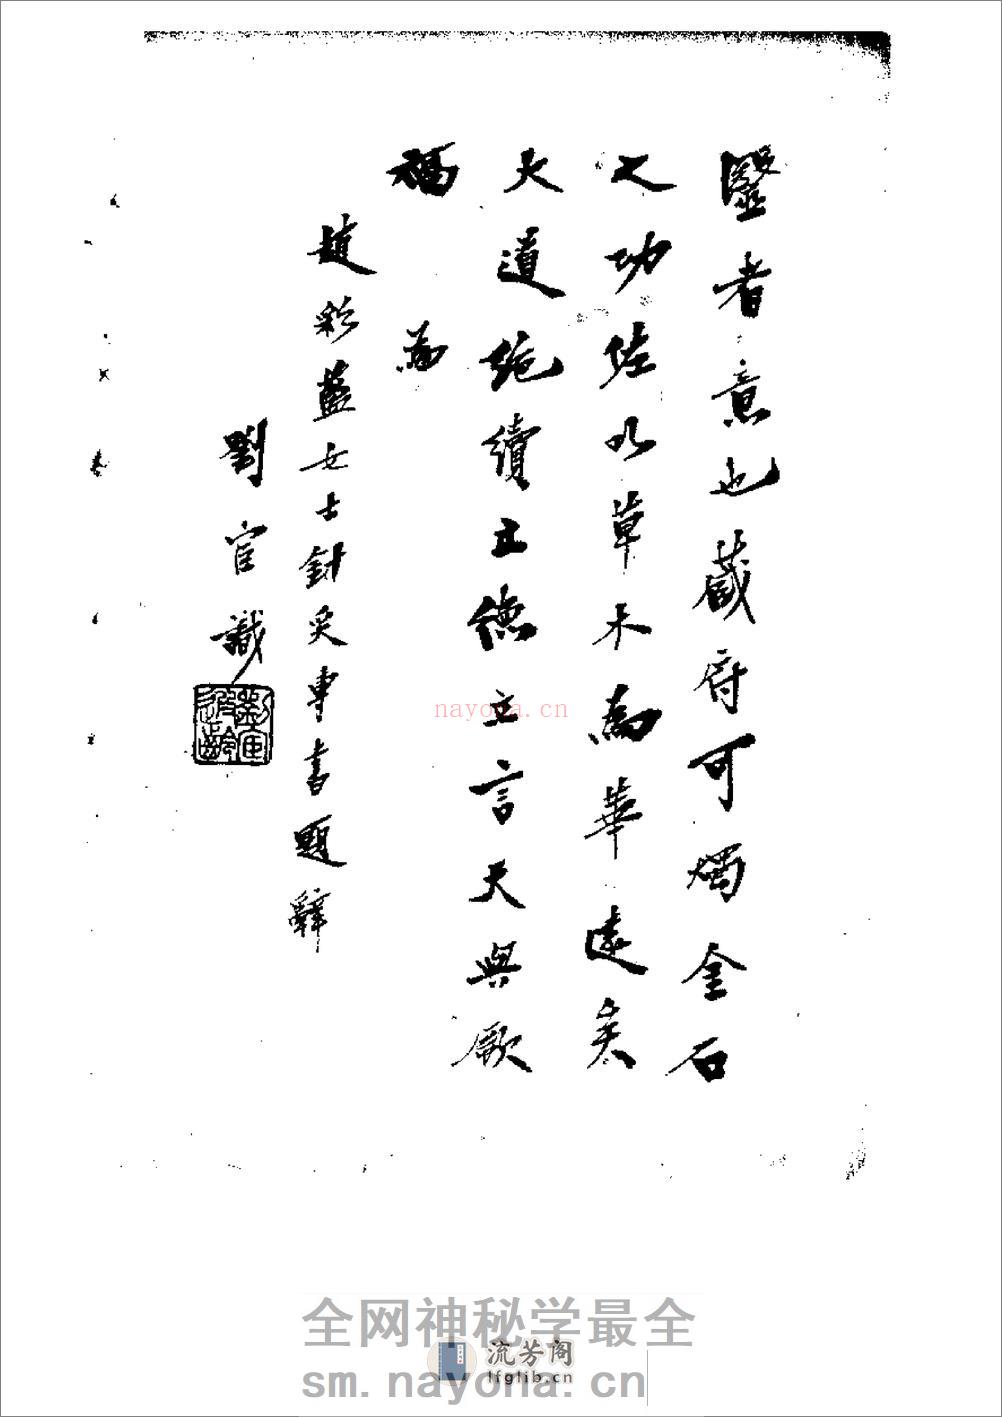 毉者意也藏府可燭金石
之功以草木為華遠矣
大道絕續立德立言天與厥
福 為
趙彩藍女士針灸專書題辭
劉宦識
劉宦遐齡
nayona.cn
全网神秘学最全
流芳阁
lfglib.cn
sm.nayona.cn